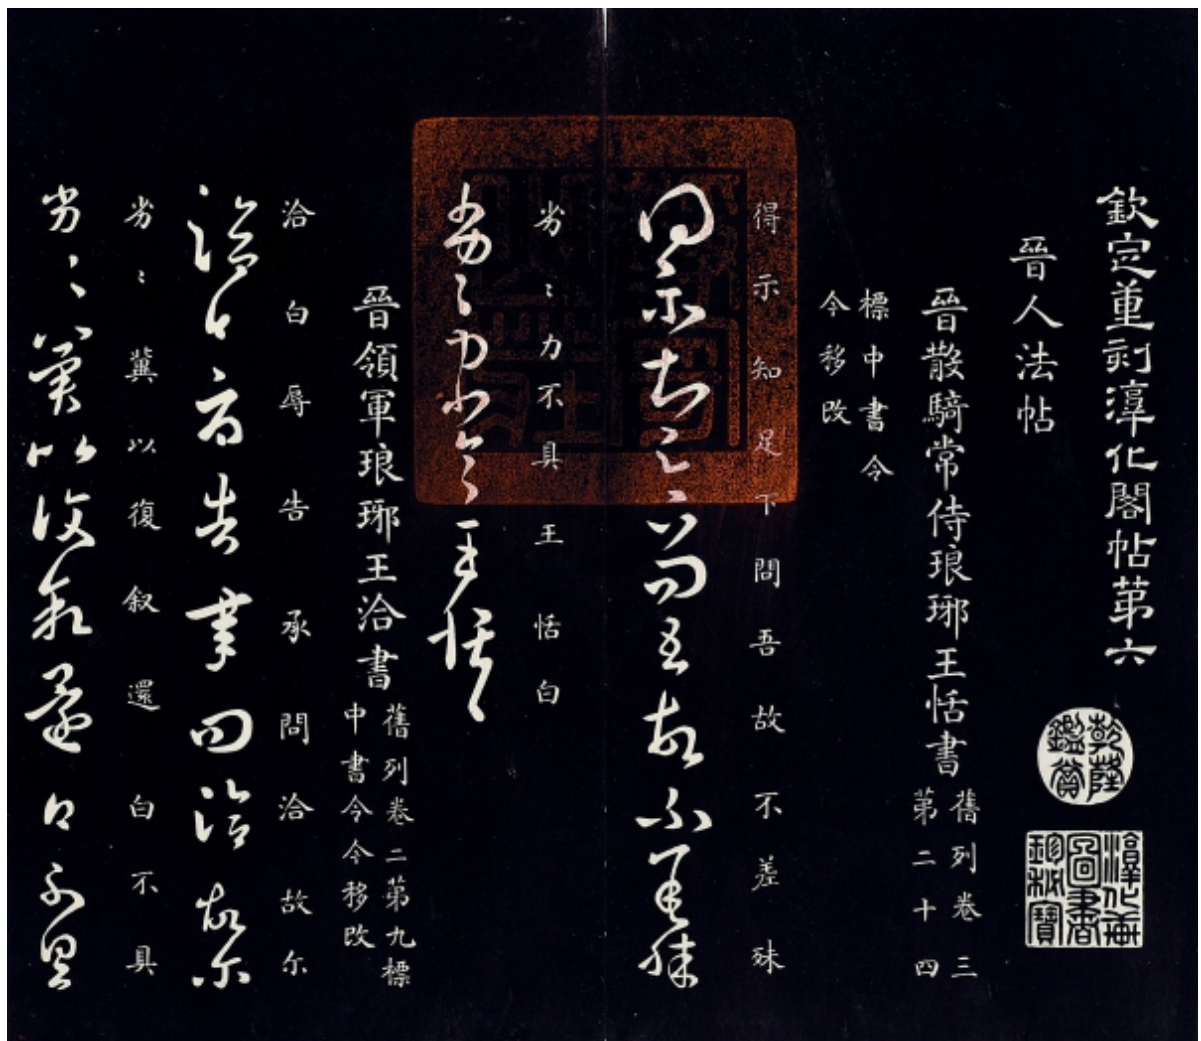 欽定重刻淳化閣帖第六
乾隆鑑賞
淳化軒圖書珍秘寶
晉人法帖
晉散騎常侍琅琊王恬書
舊列卷三
第二十四
標中書令
今移改
得示知足下問吾故不差殊
得示知足下問吾故不差殊
劣〻力不具王恬白
劣〻力不具王恬白
晉領軍琅琊王洽書
舊列卷二第九標
中書令今移改
洽白辱告承問洽故尔
洽白辱告承問洽故尔
劣〻冀以復叙還白不具
劣〻冀以復叙還白不具